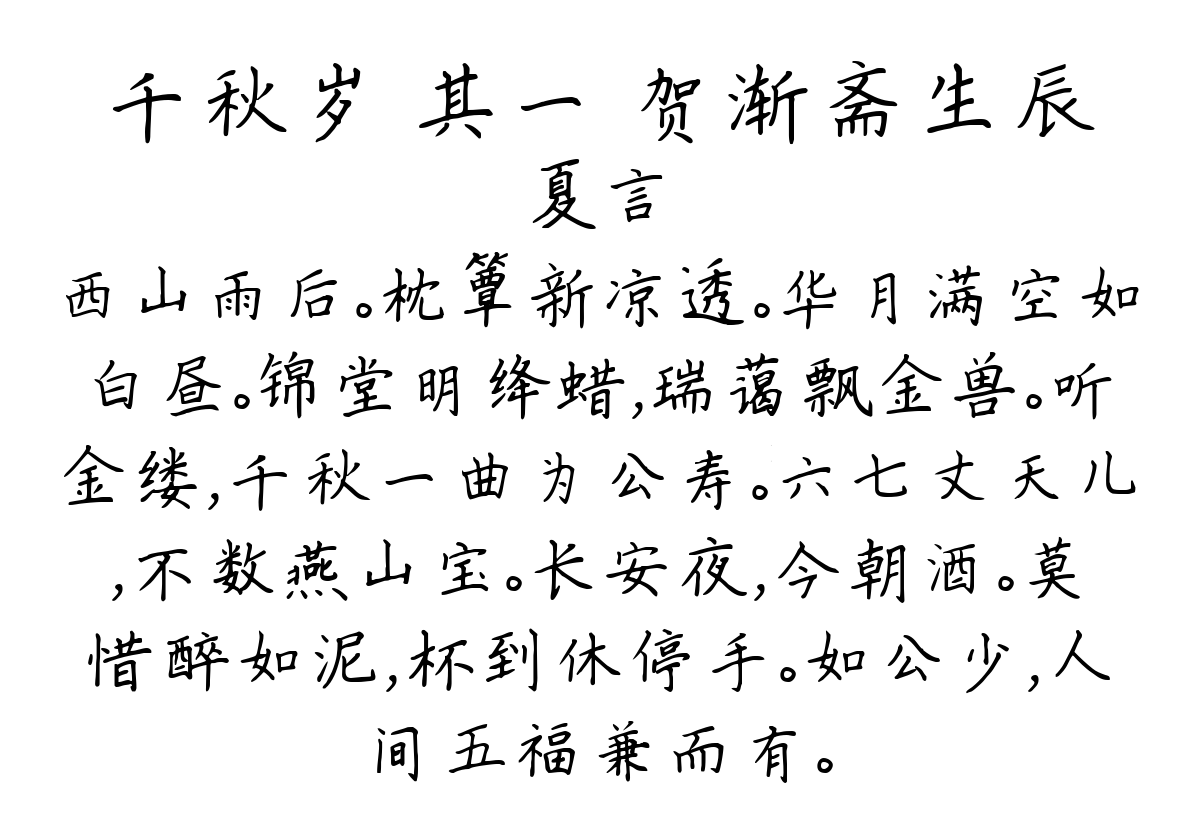 千秋岁 其一 贺渐斋生辰
夏言
西山雨后。枕簟新凉透。华月满空如
白昼。锦堂明绛蜡,瑞蔼飘金兽。听
金缕,千秋一曲为公寿。六七丈天儿
,不数燕山宝。长安夜,今朝酒。莫
惜醉如泥,杯到休停手。如公少,人
间五福兼而有。